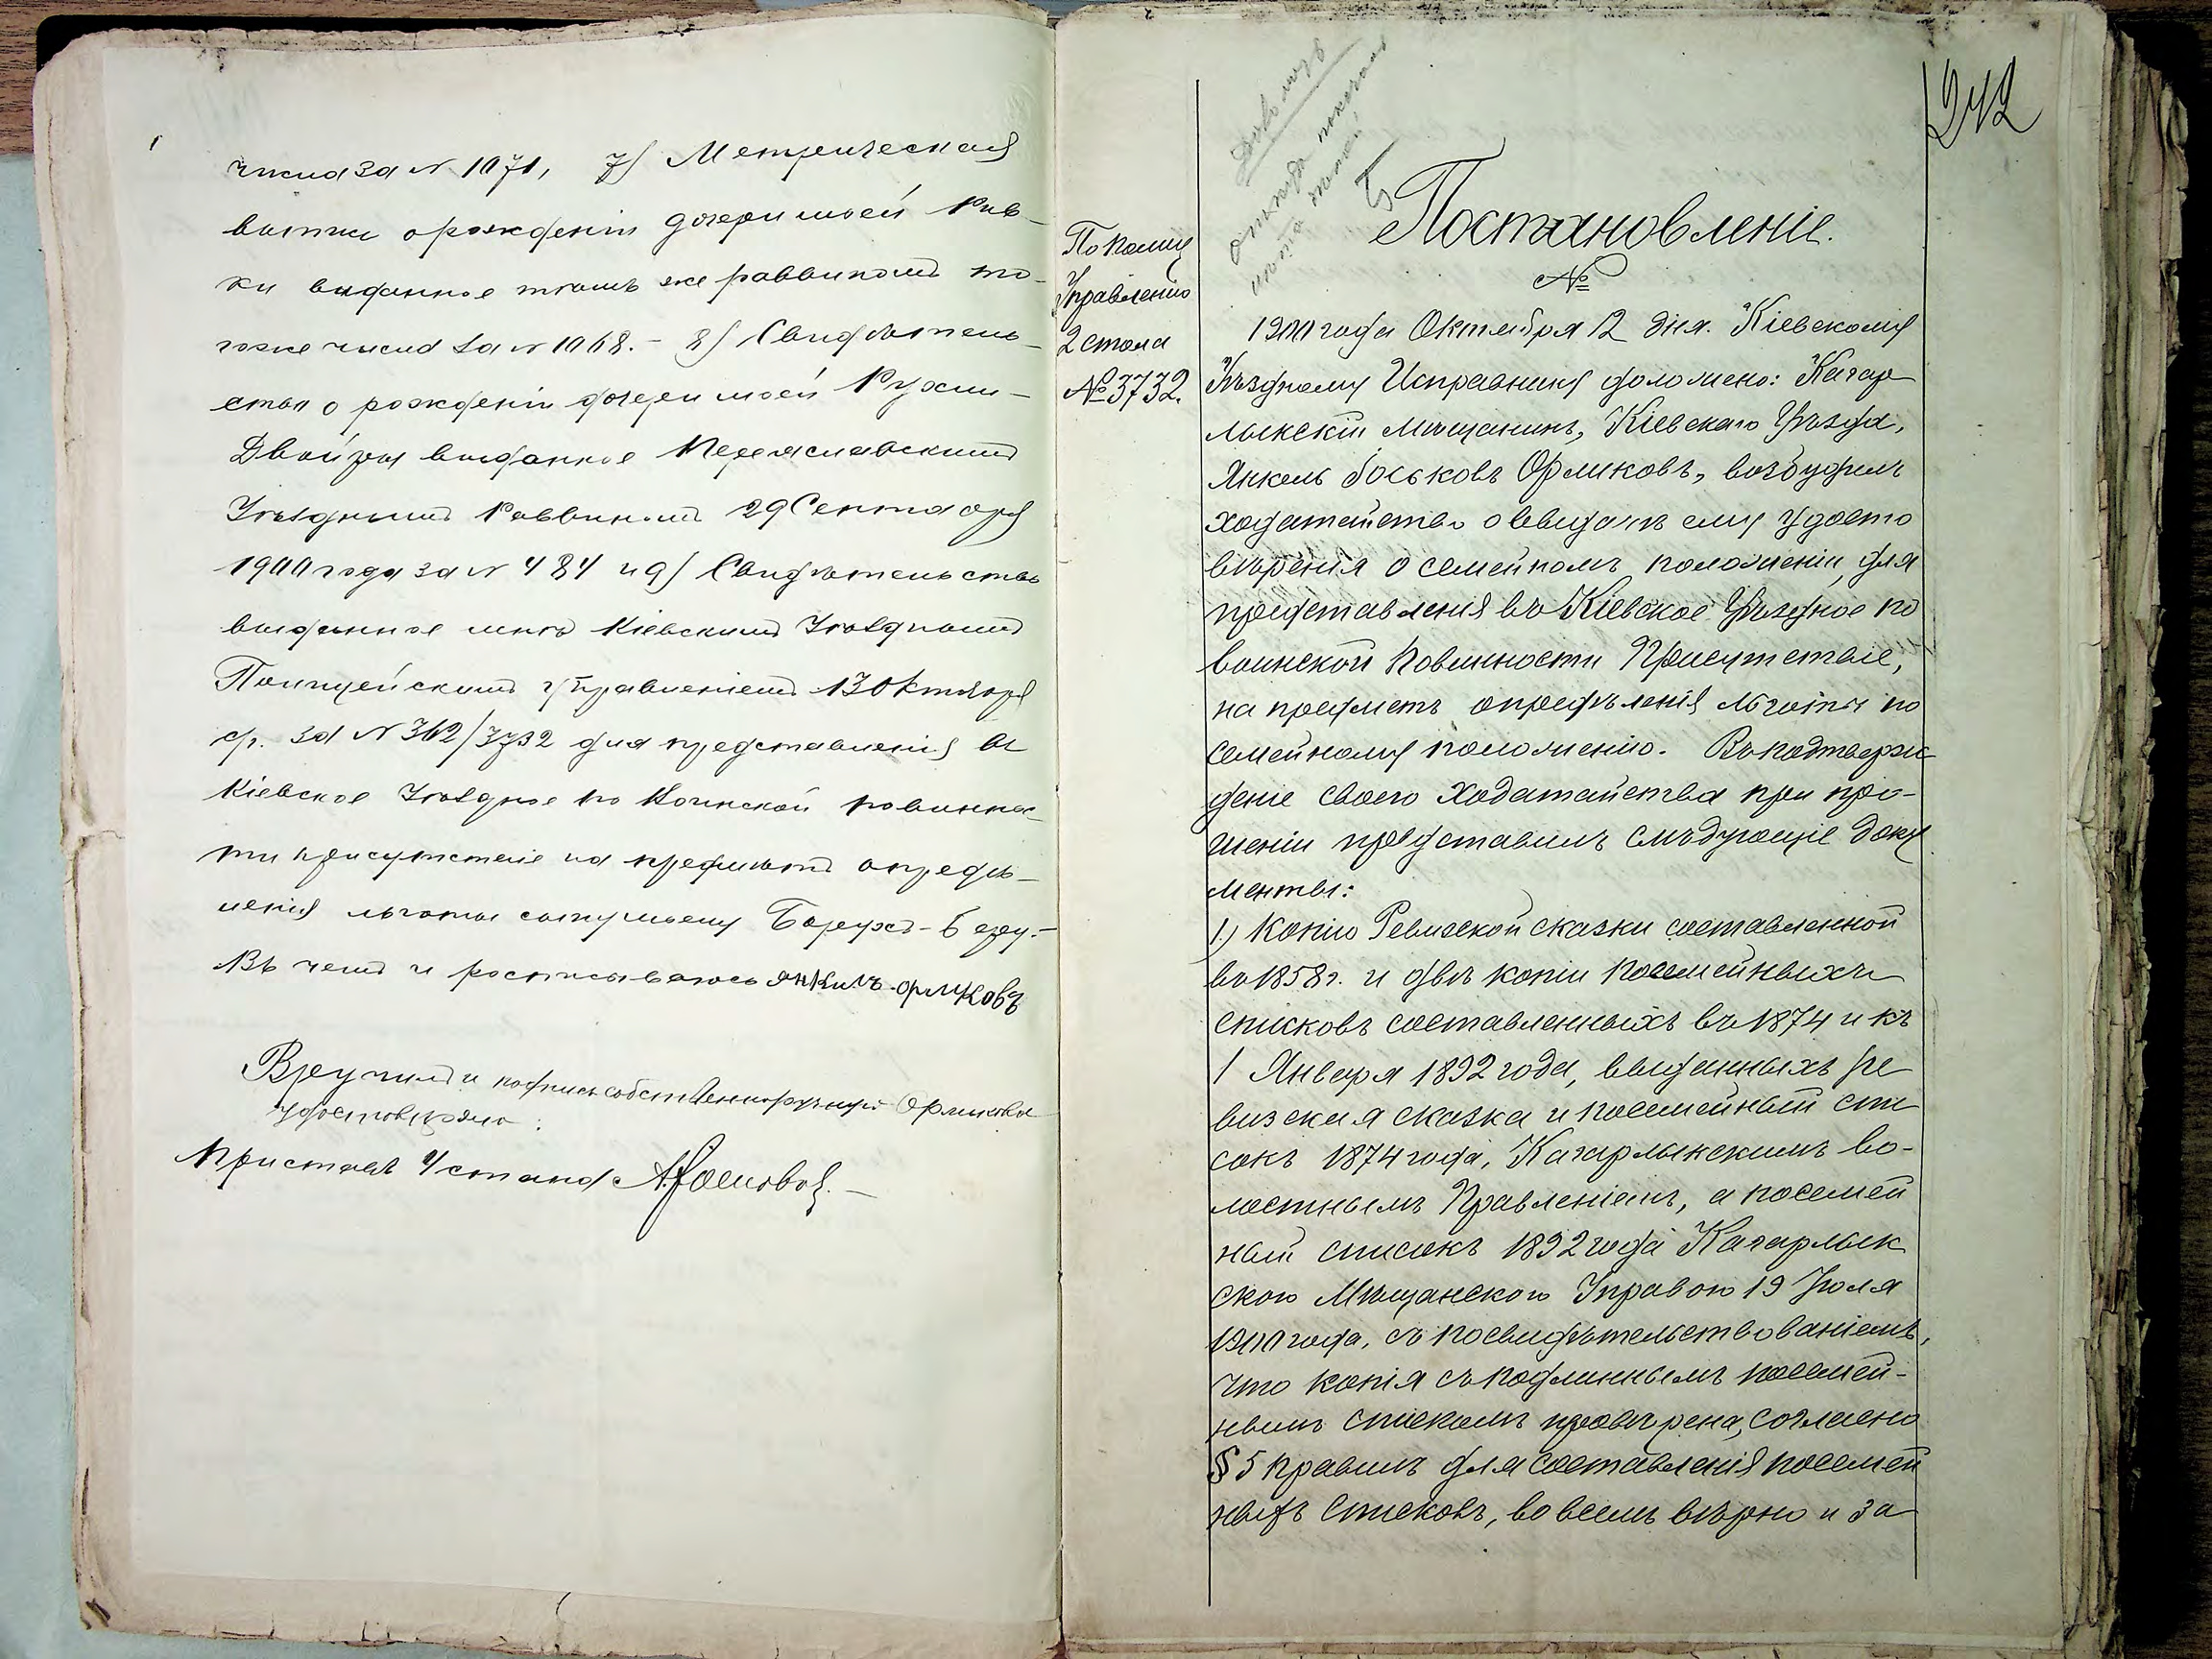 числа за N 1071, 7) Метрическая
выпись о рожденіи дочери моей Рив-
ки выданное тѣмъ же раввиномъ то-
гоже числа за N 1068.- 8) Свидѣтель-
ство о рожденіи дочери моей Рухли-
Двойры выданное Переяславскимъ
Уѣзднымъ Раввиномъ 29 Сентября
1900 года за N 484 и 9) Свидѣтельство
выданное мнѣ Кіевскимъ Уѣзднымъ
Полицейскимъ Управленіемъ 13 Октября
с/г. за N 362/3732 для представленія въ
Кіевское Уѣздное по Воинской повиннос-
ти присутствіе на предметъ опредѣ-
ленія льготы сыну моему Борухъ-Беру.-
Въ чемъ и росписываюсь Янкиль Орликовъ
Вручилъ и подпись собственноручную Орликова
удостовѣряю:
Приставъ 4 стана
242
По Полиц
Управленію
2 стола
№ 3732.
Постановленіе.
№
1900 года Октября 12 дня. Кіевскому
Уѣздному Исправнику доложено: Кагар
лыкскій мѣщанинъ, Кіевскаго Уѣзда,
Янкель Іоськовъ Орликовъ, возбудилъ
ходатайство о выдачѣ ему удосто
вѣренія о семейномъ положеніи, для
представленія въ Кіевское Уѣздное по
воинской повинности Присутствіе,
на предметъ опредѣленія льготы по
семейному положенію. Въ подтверж
деніе своего ходатайства при про-
шеніи представилъ слѣдующіе доку
менты:
1.) Копію Ревизской сказки составленной
въ 1858 г. и двѣ копіи посемейныхъ
списковъ составленныхъ въ 1874 и къ
1 Января 1892 года, выданныхъ ре
визская сказка и посемейный спи
сокъ 1874 года, Кагарлыкскимъ во-
лостнымъ Правленіемъ, а посемей
ный списокъ 1892 года Кагарлык
скою Мѣщанскою Управою 19 Іюля
1900 года, съ посвидѣтельствованіемъ,
что копія съ подлиннымъ посемей-
нымъ спискомъ провѣрена, согласно
§ 5 правилъ для составленія посемей
ныхъ списковъ, во всемъ вѣрно и за